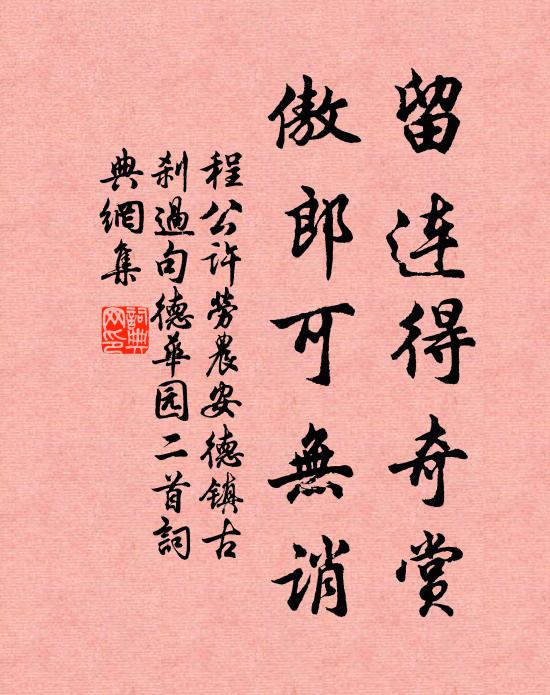 留连得奇賞
傲郎可無誚
程公許勞農安德镇古
刹過句德華园二首詞
典網集
詞典网印